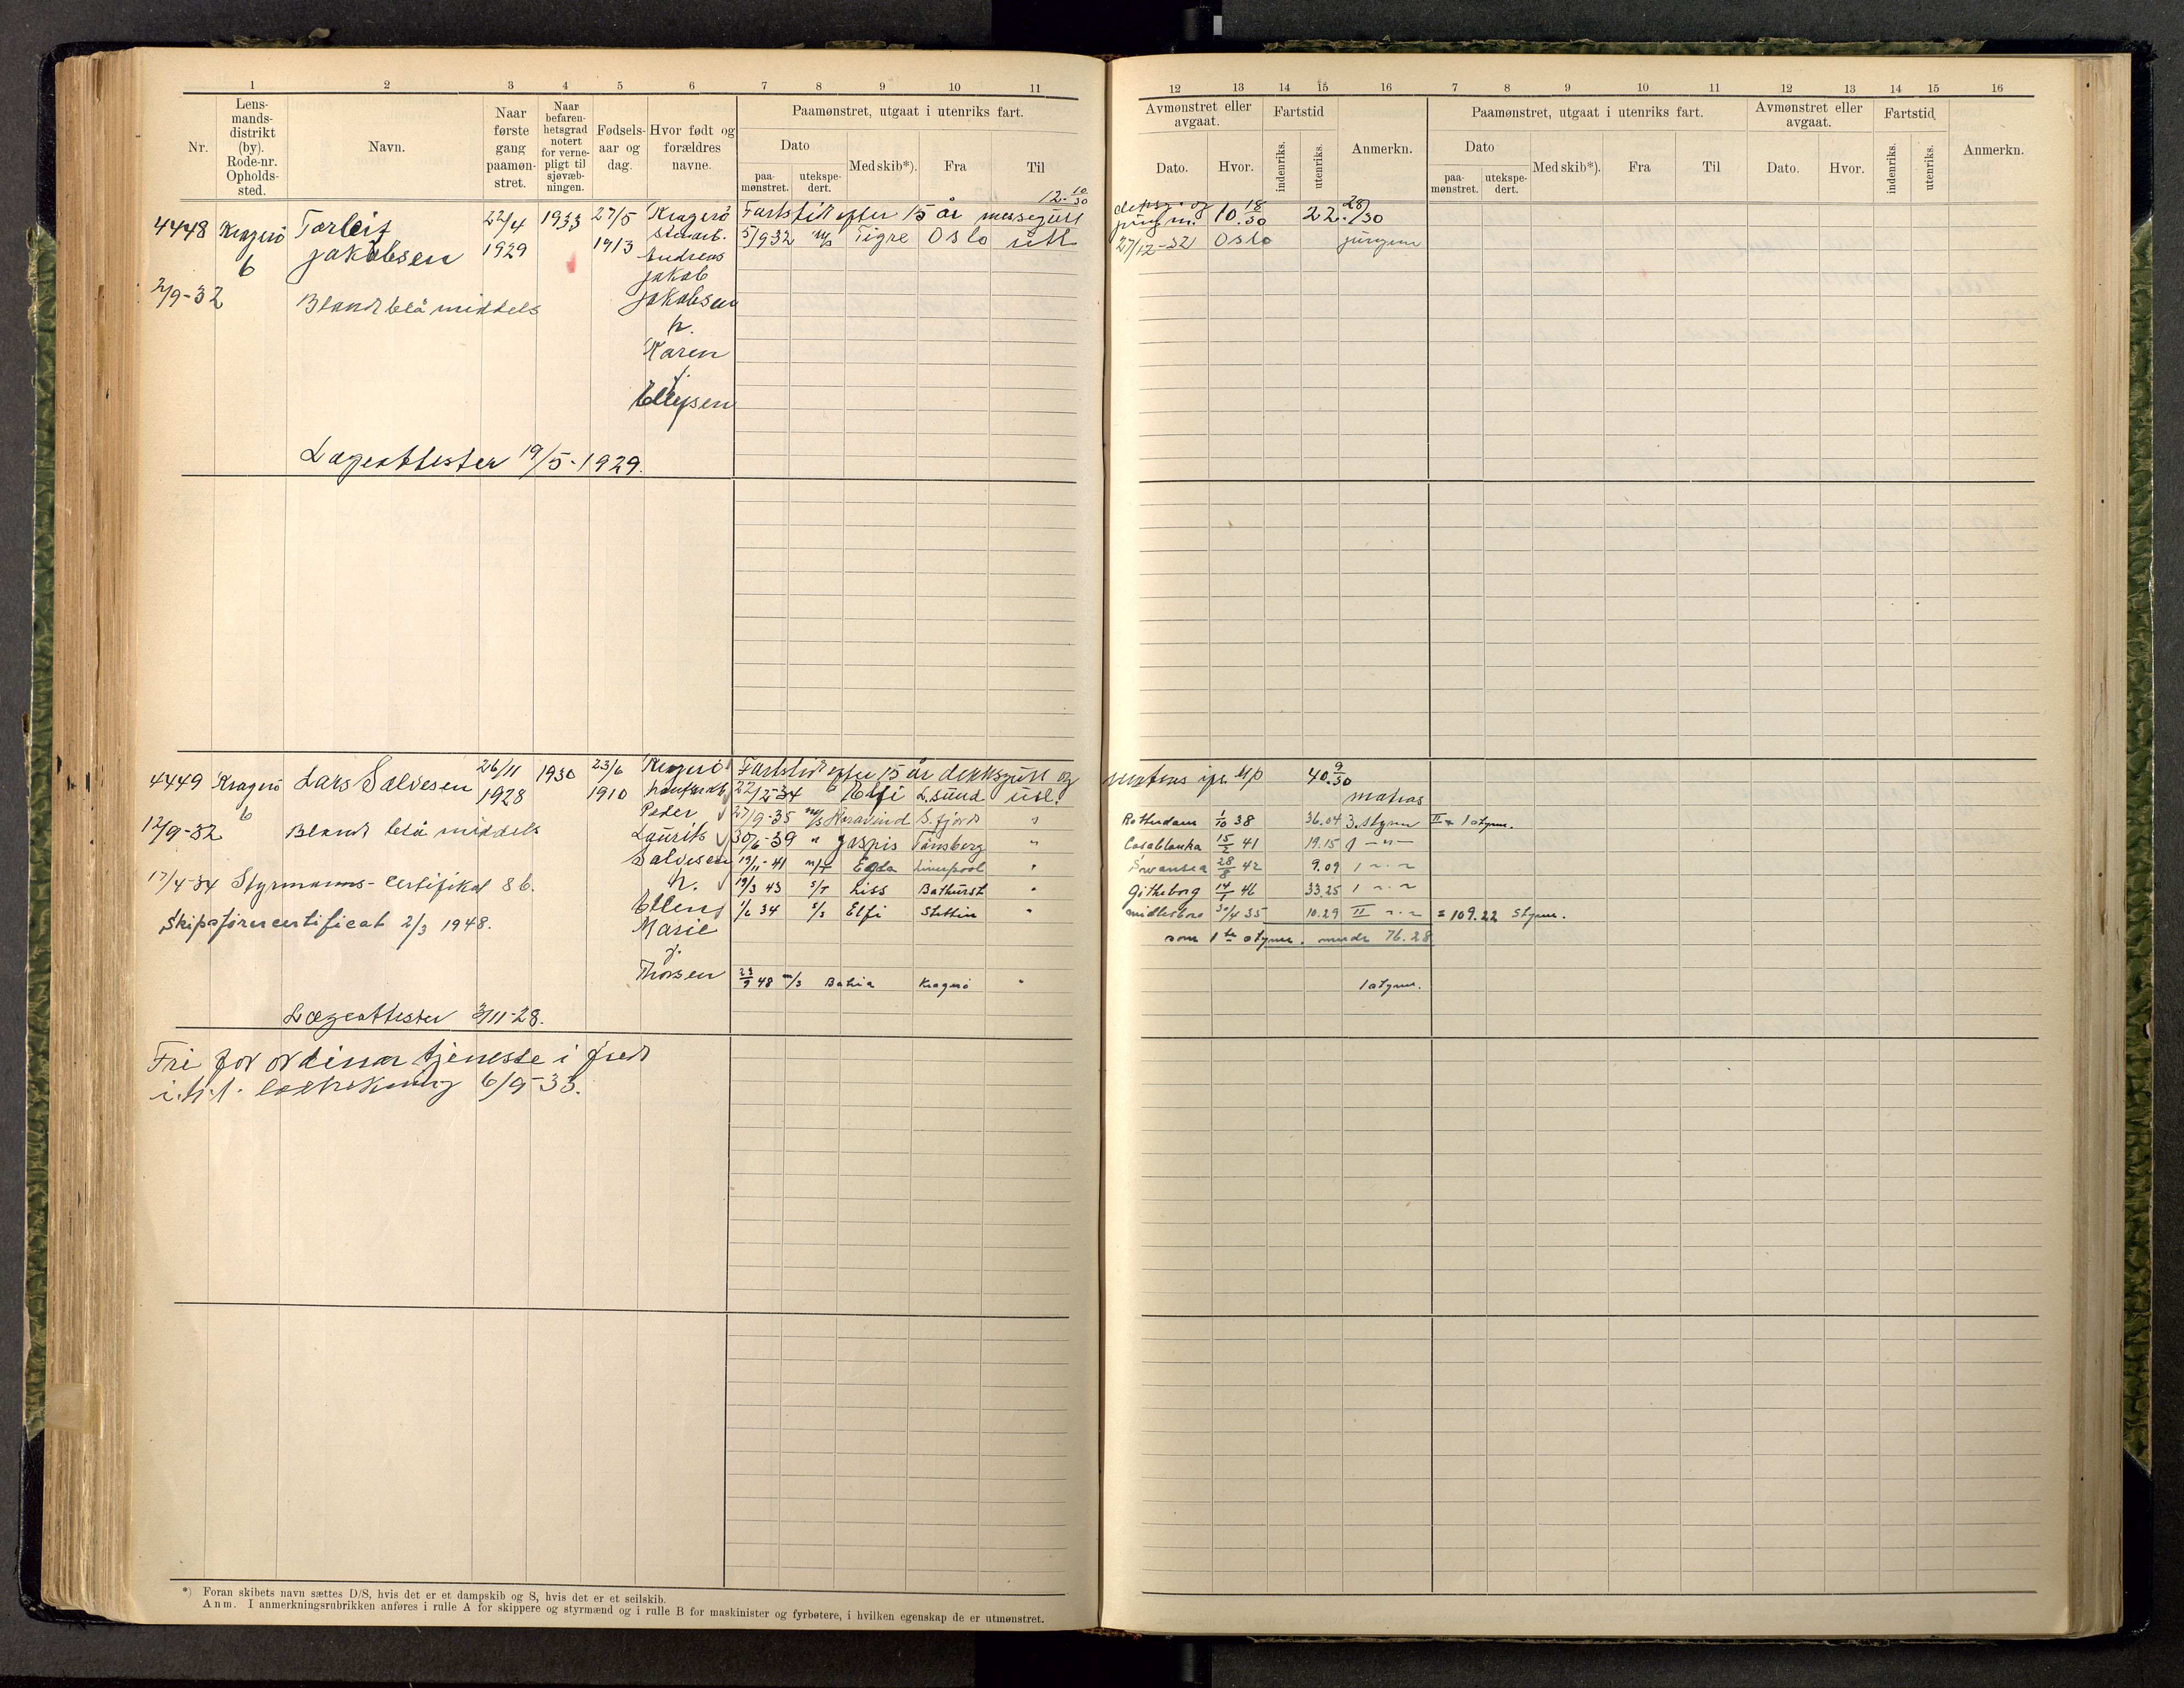 1 2 3 4 5 6 7 8 9 10 11
Nr.
Lens-
mands-
distrikt
(by).
Rode-nr.
Opholds-
sted.
Navn.
Naar
første
gang
paamøn-
stret.
Naar
befaren-
hetsgrad
notert
for verne-
pligt til
sjøvæb-
ningen.
Fødsels-
aar og
dag.
Hvor født og
forældres
navne.
Paamønstret, utgaat i utenriks fart.
Dato
paa-
mønstret.
utekspe-
dert.
Med skib*).
Fra
Til
4448 Kragerö Torleif 22/4 1933 27/5 Kragerö Fartstid efter 15 år messegutt 12. 10/30
6 Jakobsen 1929 1913 5/9 32 m/s Tigre Oslo utl
Andreas
Jakob
2/9-32 Blondt blå middels Jakobsen
h.
Karen
f.
Ellefsen
Lægeattester 19/5-1929.
4449 Kragerö Lars Salvesen 26/11 1930 23/6 Kragerö Fartstid efter 15 år dekksgutt og
6 1928 1910 22/2-34 Elfi L.sund utl.
Peder 27/9-35 m/s S.fjord "
12/9-32 Blondt blå middels Laurits 30/6-39 " Jaspis Tønsberg "
Salvesen 19/11-41 m/T Egda Liverpool "
17/4-34 Styrmanns-certifikat 86. h. 19/3 43 s/T Liss Bathurst "
Ellen 1/6 34 s/s Elfi Stettin "
Skipsførercertificat 2/3 1948. Marie
f.
Thorsen 23/9 48 m/s Bahia Kragerö "
Lægeattester 3/11-28.
Fri for ordinær tjeneste i fred
i.h.t. loddtrekning 6/9-33.
*) Foran skibets navn sættes D/S, hvis det er et dampskib og S, hvis det er et seilskib.
Anm. I anmerkningsrubrikken anføres i rulle A for skippere og styrmænd og i rulle B for maskinister og fyrbøtere, i hvilken egenskap de er utmønstret.
12 13 14 15 16 7 8 9 10 11 12 13 14 15 16
Avmønstret eller
avgaat.
Dato.
Hvor.
Fartstid
indenriks.
utenriks.
Anmerkn.
Paamønstret, utgaat i utenriks fart.
Dato
paa-
mønstret.
utekspe-
dert.
Med skib*).
Fra
Til
Avmønstret eller
avgaat.
Dato.
Hvor.
Fartstid
indenriks.
utenriks.
Anmerkn.
dekksg. og
jungm. 10. 18/30 22. 28/30
27/12-32 Oslo jungm
matros 40. 9/30
matros
Rotterdam 1/10 38 36.04 3. styrm II + 1 styrm.
Casablanka 15/2 41 19.15 1 — " —
Swansea 28/8 42 9.09 1 ~ " ~
Gøtheborg 14/1 46 33.25 1 ~ " ~
Midlesboro 30/4 35 10.29 II ~ " ~ = 109.22 styrm.
som 1ste styrm. mndr 76.28
1 styrm.